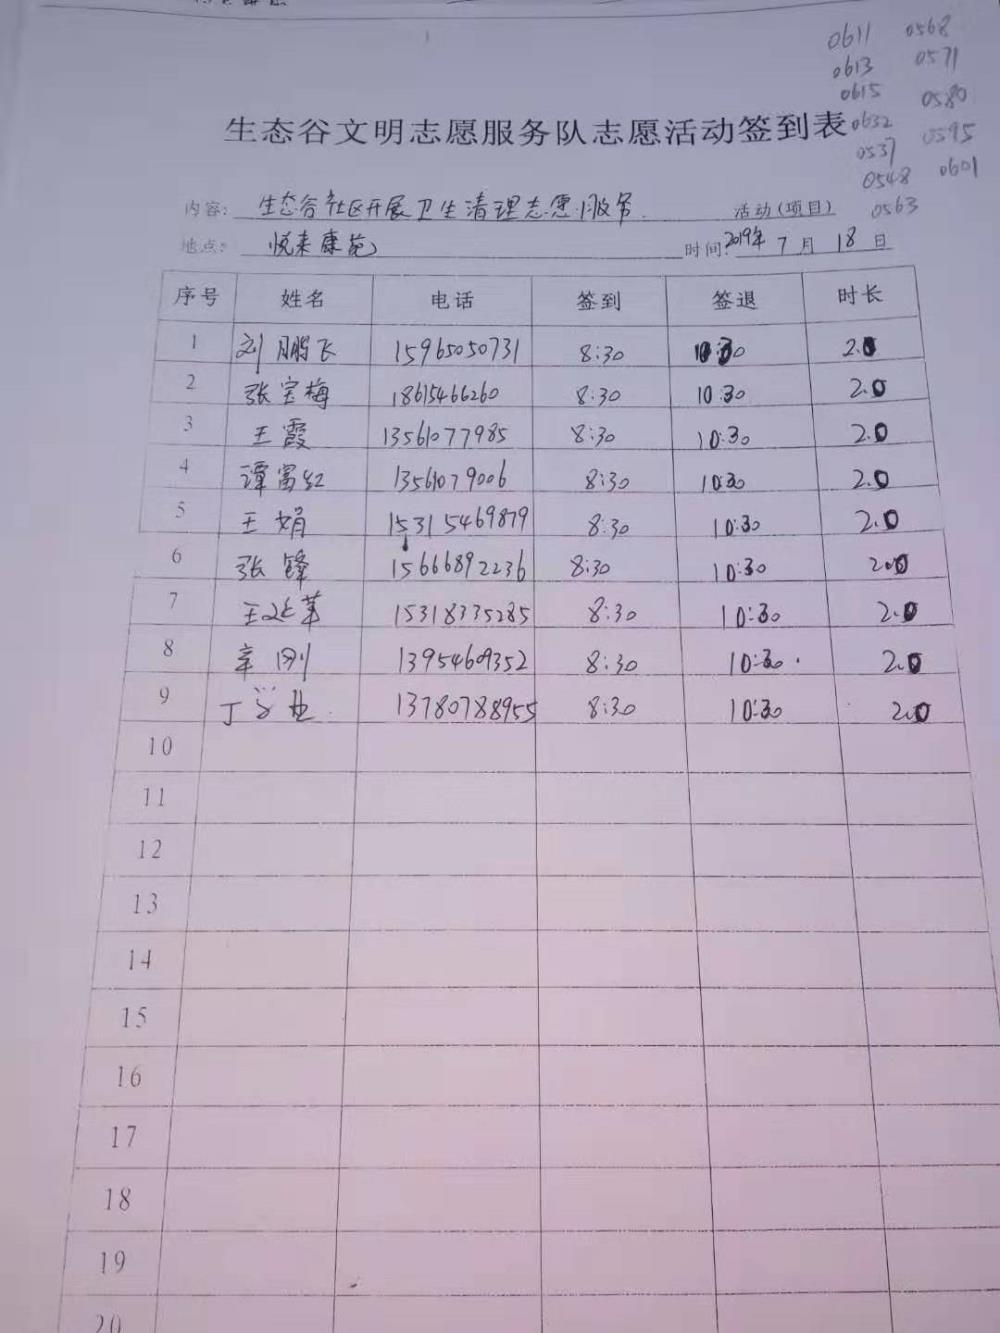 0611 0568
0613 0571
0615 0580
生态谷文明志愿服务队志愿活动签到表
0632 0595
0537 0601
0548
0563
内容: 生态谷社区开展卫生清理志愿服务 活动(项目)
地点: 悦来康苑 时间: 2019年 7 月 18 日
序号 姓名 电话 签到 签退 时长
1 刘鹏飞 15965050731 8:30 10:30 2.0
2 张宝梅 18615466260 8:30 10:30 2.0
3 王霞 13561077985 8:30 10:30 2.0
4 谭富红 13561079006 8:30 10:30 2.0
5 王娟 15315469879 8:30 10:30 2.0
6 张锋 15666892236 8:30 10:30 2.0
7 15318335285 8:30 10:30 2.0
8 辛刚 13954609352 8:30 10:30 2.0
9 丁 13780788955 8:30 10:30 2.0
10
11
12
13
14
15
16
17
18
19
20